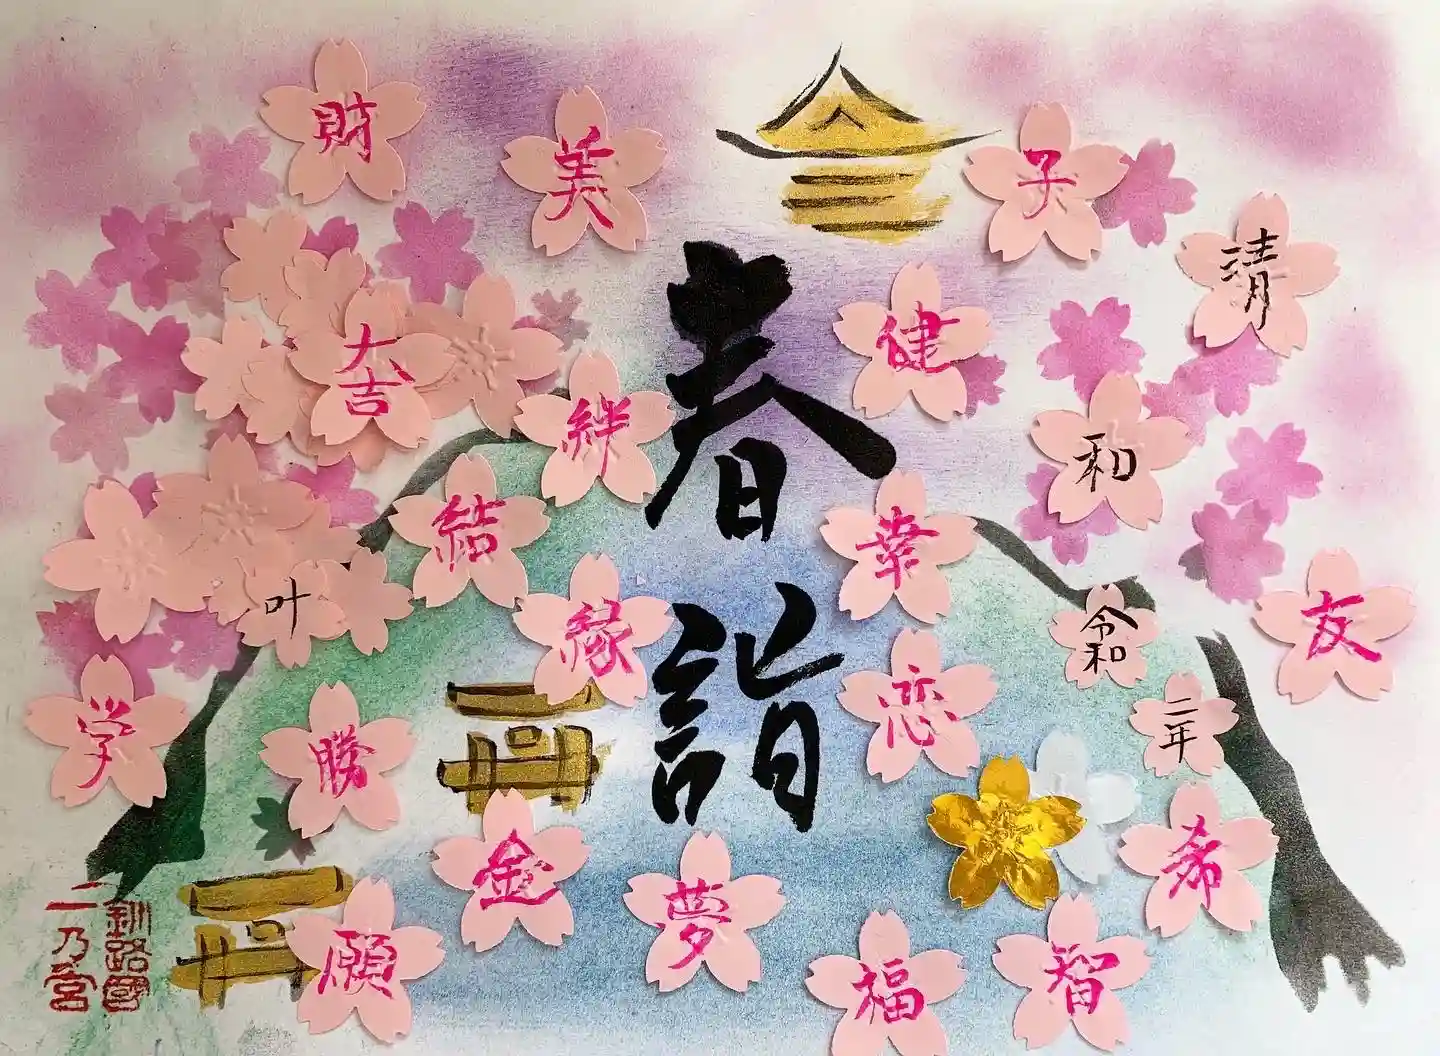 春詣
財
美
子
清
大吉
絆
健
和
結
幸
叶
縁
令和
二年
友
学
勝
恋
金
夢
希
願
福
智
釧路國
二乃宮